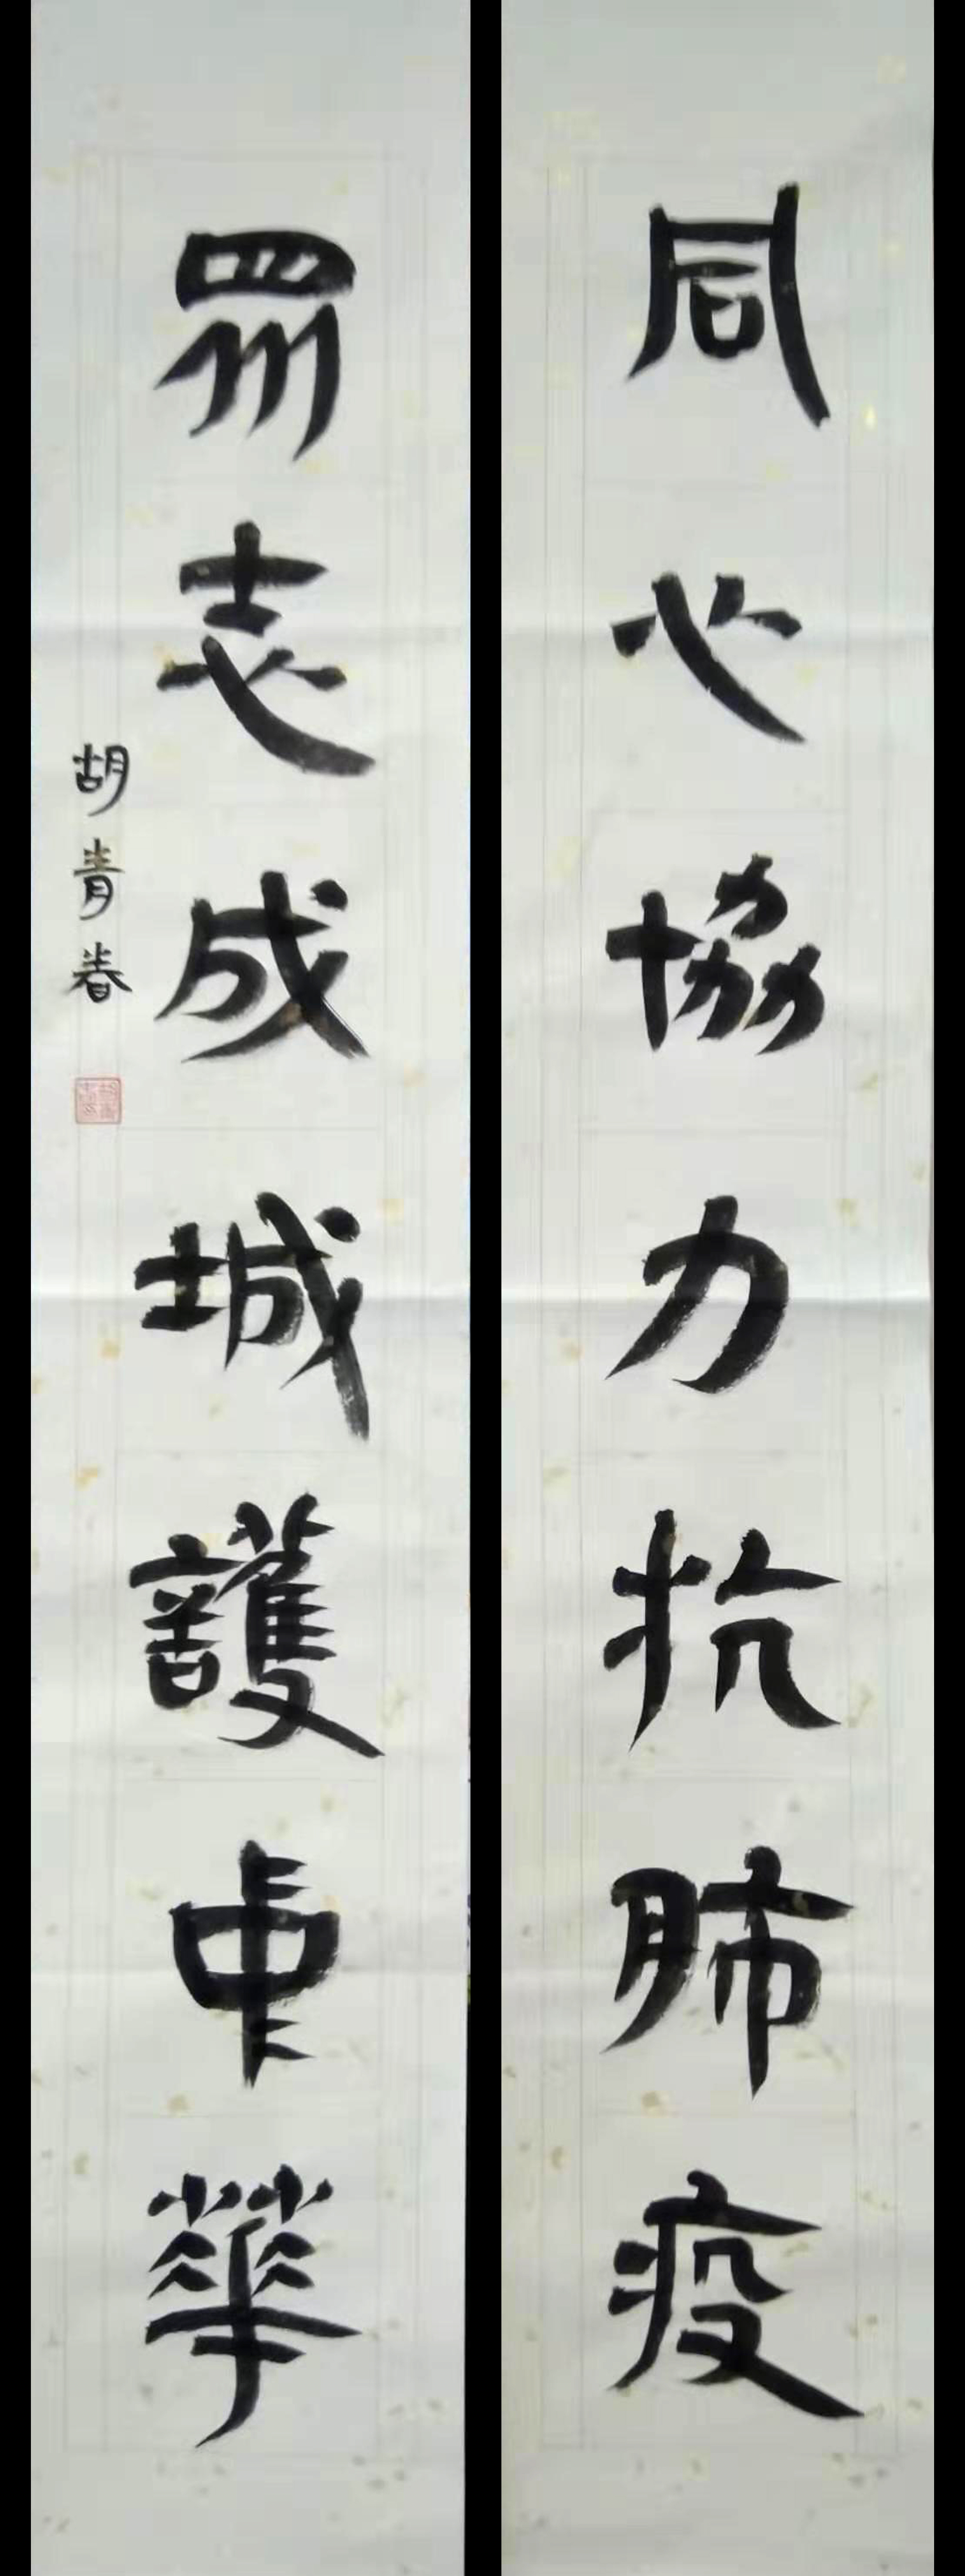 同心協力抗肺疫
眾志成城護中華
胡青春